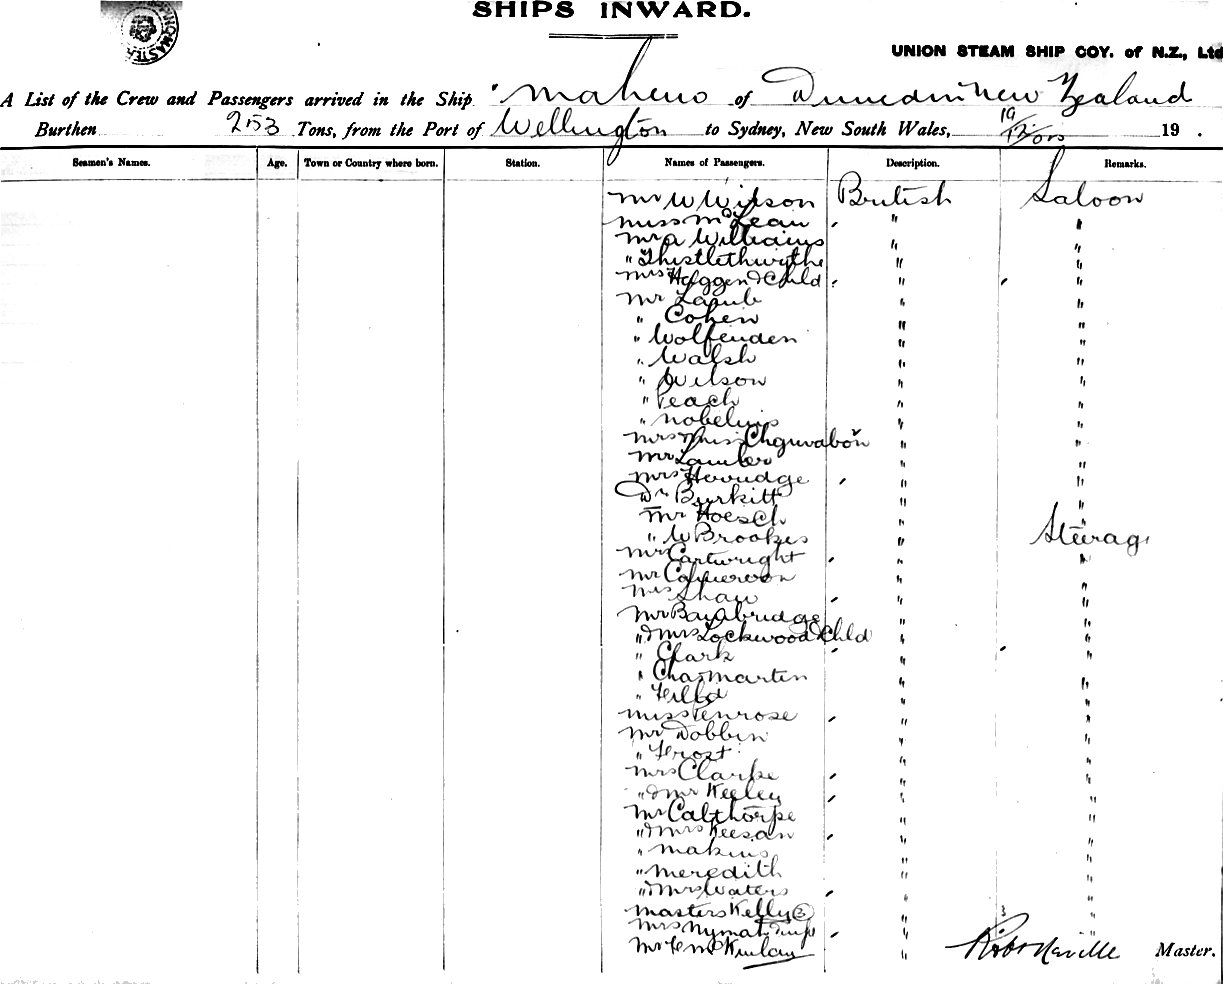 SHIPS INWARD.
UNION STEAM SHIP COY. of N.Z., Ltd
A List of the Crew and Passengers arrived in the Ship "Maheno of Dunedin New Zealand
Burthen 253 Tons, from the Port of Wellington to Sydney, New South Wales, 19 .
Seamen's Names. Age. Town or Country where born. Station. Names of Passengers. Description. Remarks.
Mr W Wilson British Saloon
Miss McLean " "
Mr A Williams " "
" Thistlethwythe " "
Mrs Haggen & Child " "
Mr Lamb " "
" Cohen " "
" Wolfenden " "
" Walsh " "
" Wilson " "
" Peach " "
" Nobelius " "
Mrs Miss " "
Mr " "
Mrs " "
Dr Burkitt " "
Mr Hoesch " "
" W Brookes " Steerage
Cartwright " "
Mr Cameron " "
Mrs Shaw " "
Mr Bainbridge " "
" & Mrs Lockwood & Child " "
" Clark " "
" Chas Martin " "
" " "
Miss Penrose " "
Mr Dobbin " "
" Frost " "
Mrs Clarke " "
" & Mr Keeley " "
Mr Calthorpe " "
" & Mrs Keesan " "
" Makins " "
" Meredith " "
" & Mrs Waters " "
Masters Kelly 3 " "
Mrs " "
Mr "
Robt Neville Master.